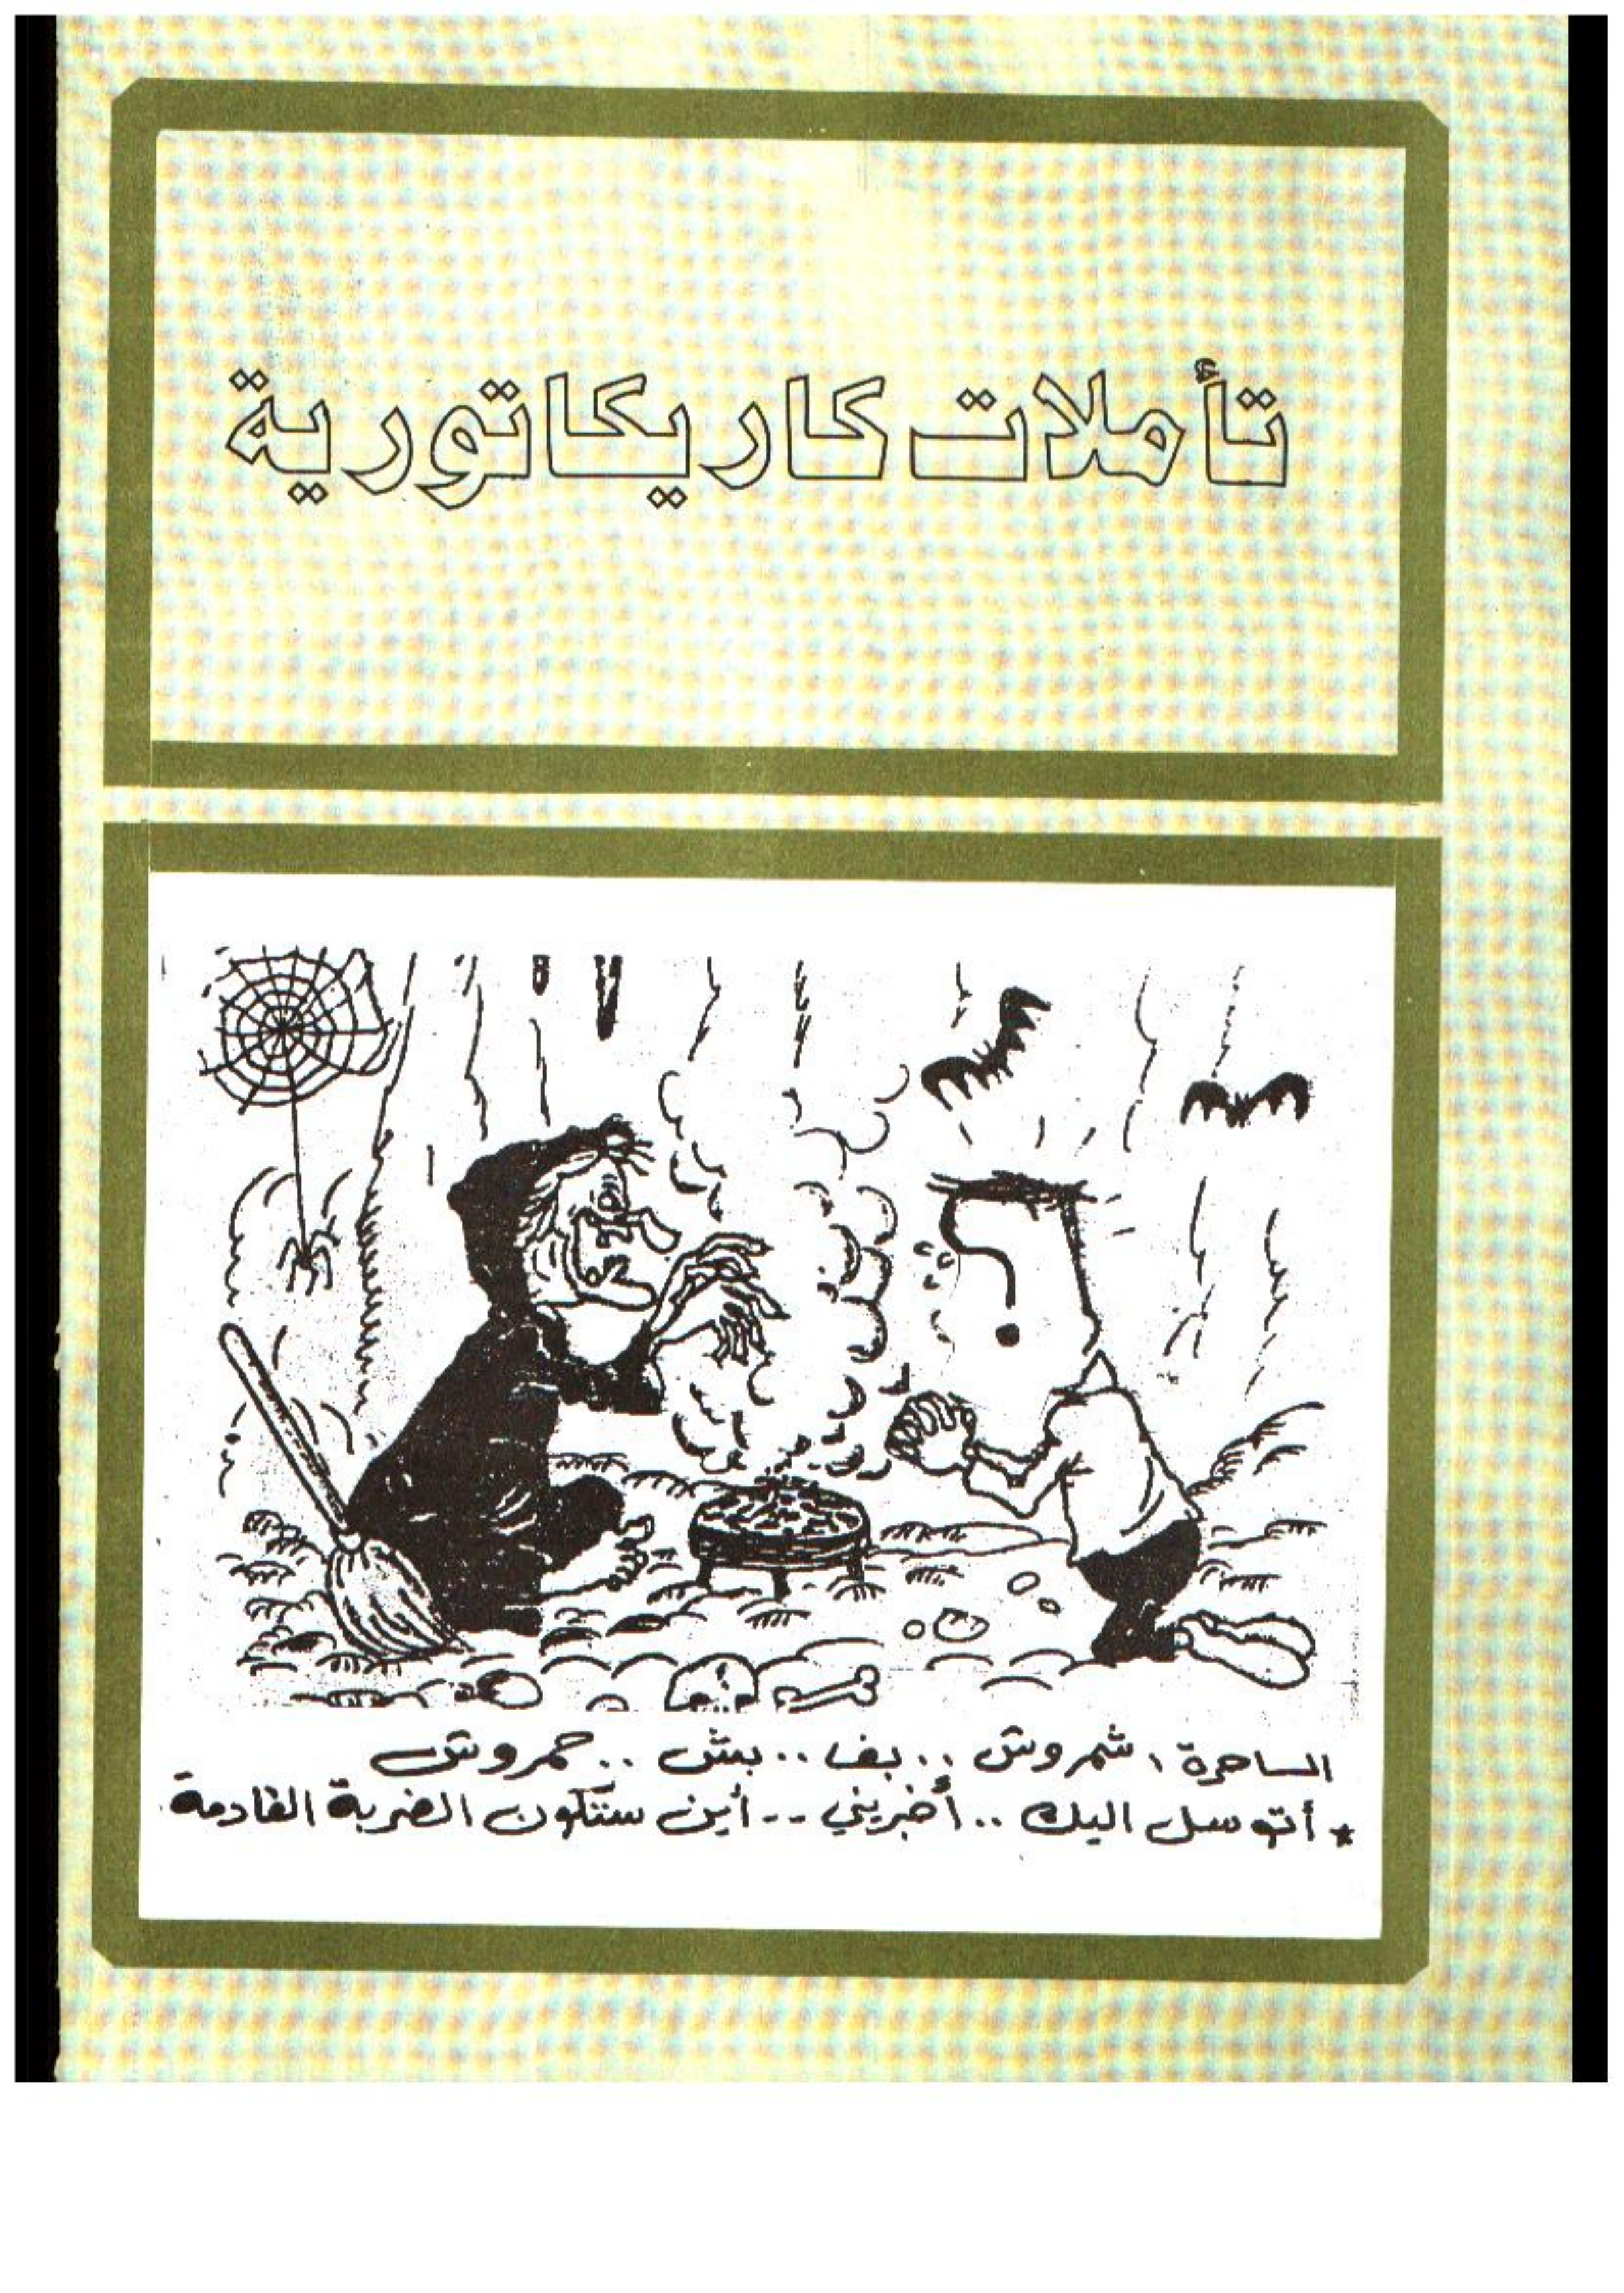 تأملات كاريكاتورية
الساحرة، شمروش .. بف .. بش .. حمروش
* أتوسل اليك .. أخبريني -- أين ستكون الضربة القادمة